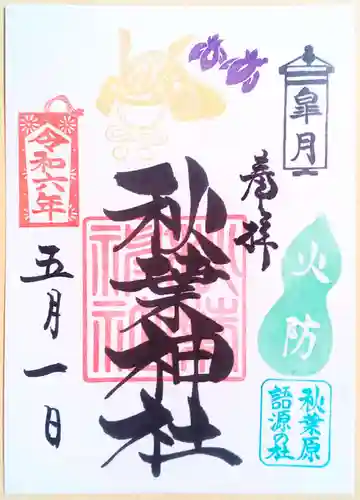 皐月
奉拝
火防
秋葉原
語源の社
秋葉神社
令和六年
五月一日